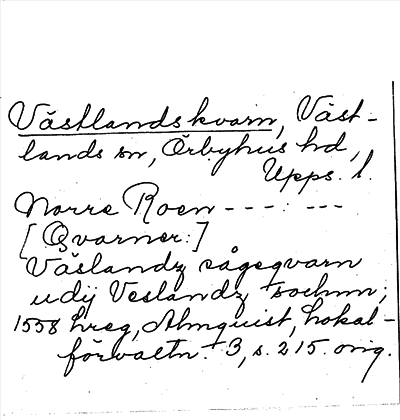 Västlandskvarn, Väst-
lands sn, Örbyhus hd,
Upps. l.
Norre Roen - - - : - - -
[Qvarner:]
Väslandz sågeqvarn
udij Veslandz sochnn;
1558 hreg, Almquist, Lokal-
förvaltn. 3, s. 215. orig.